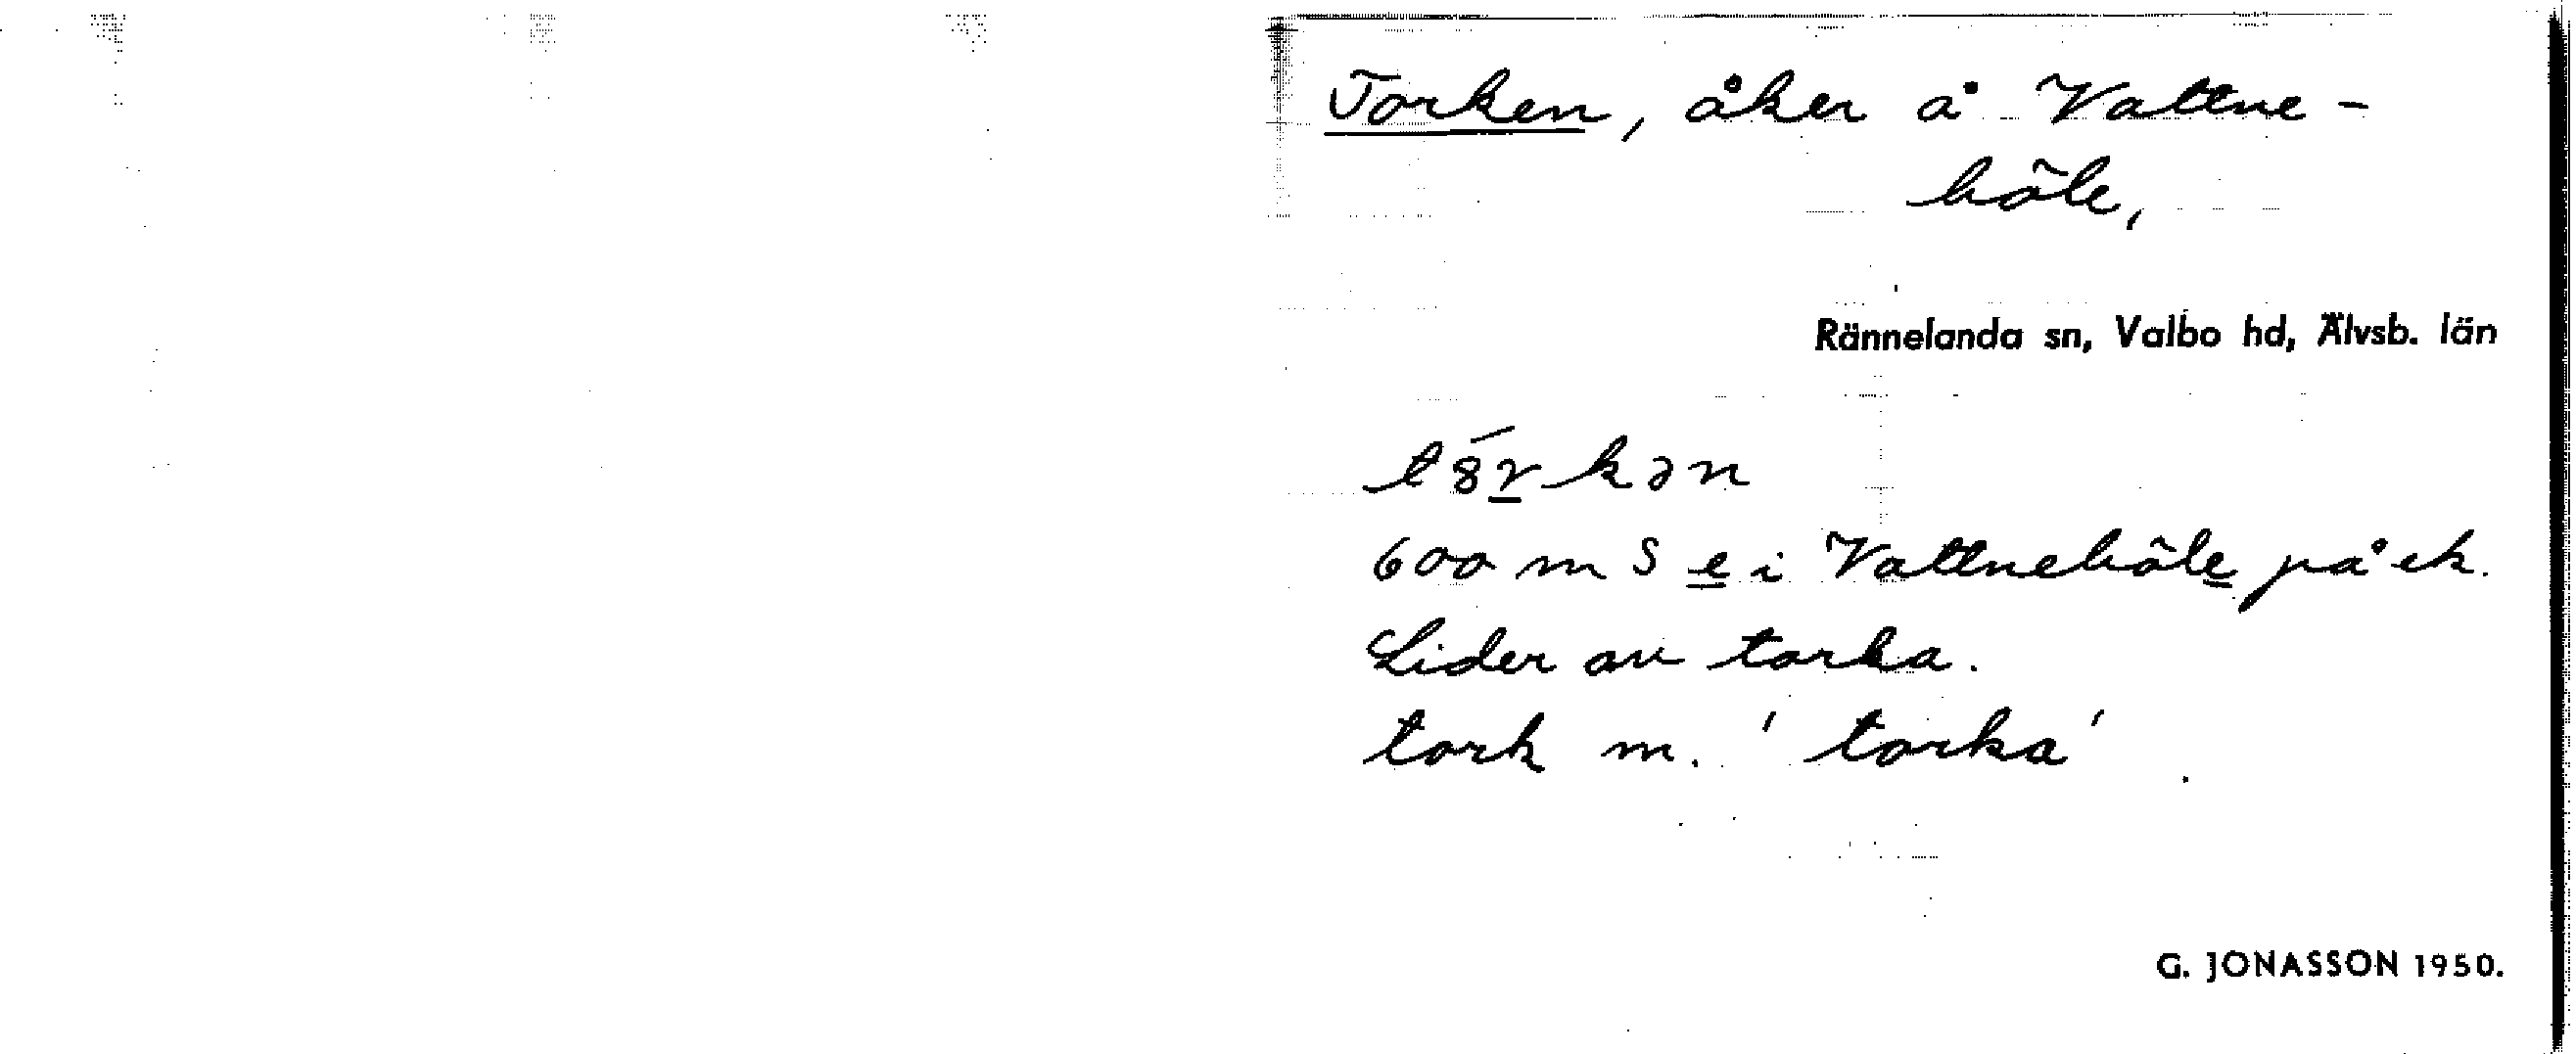 Torken, åker å Vattne-
böle,
Rännelanda sn, Valbo hd, Älvsb. län
t8́rkən
600 m S e i Vattneböle på ek.
Lider av torka.
tork m. 'torka'
G. JONASSON 1950.